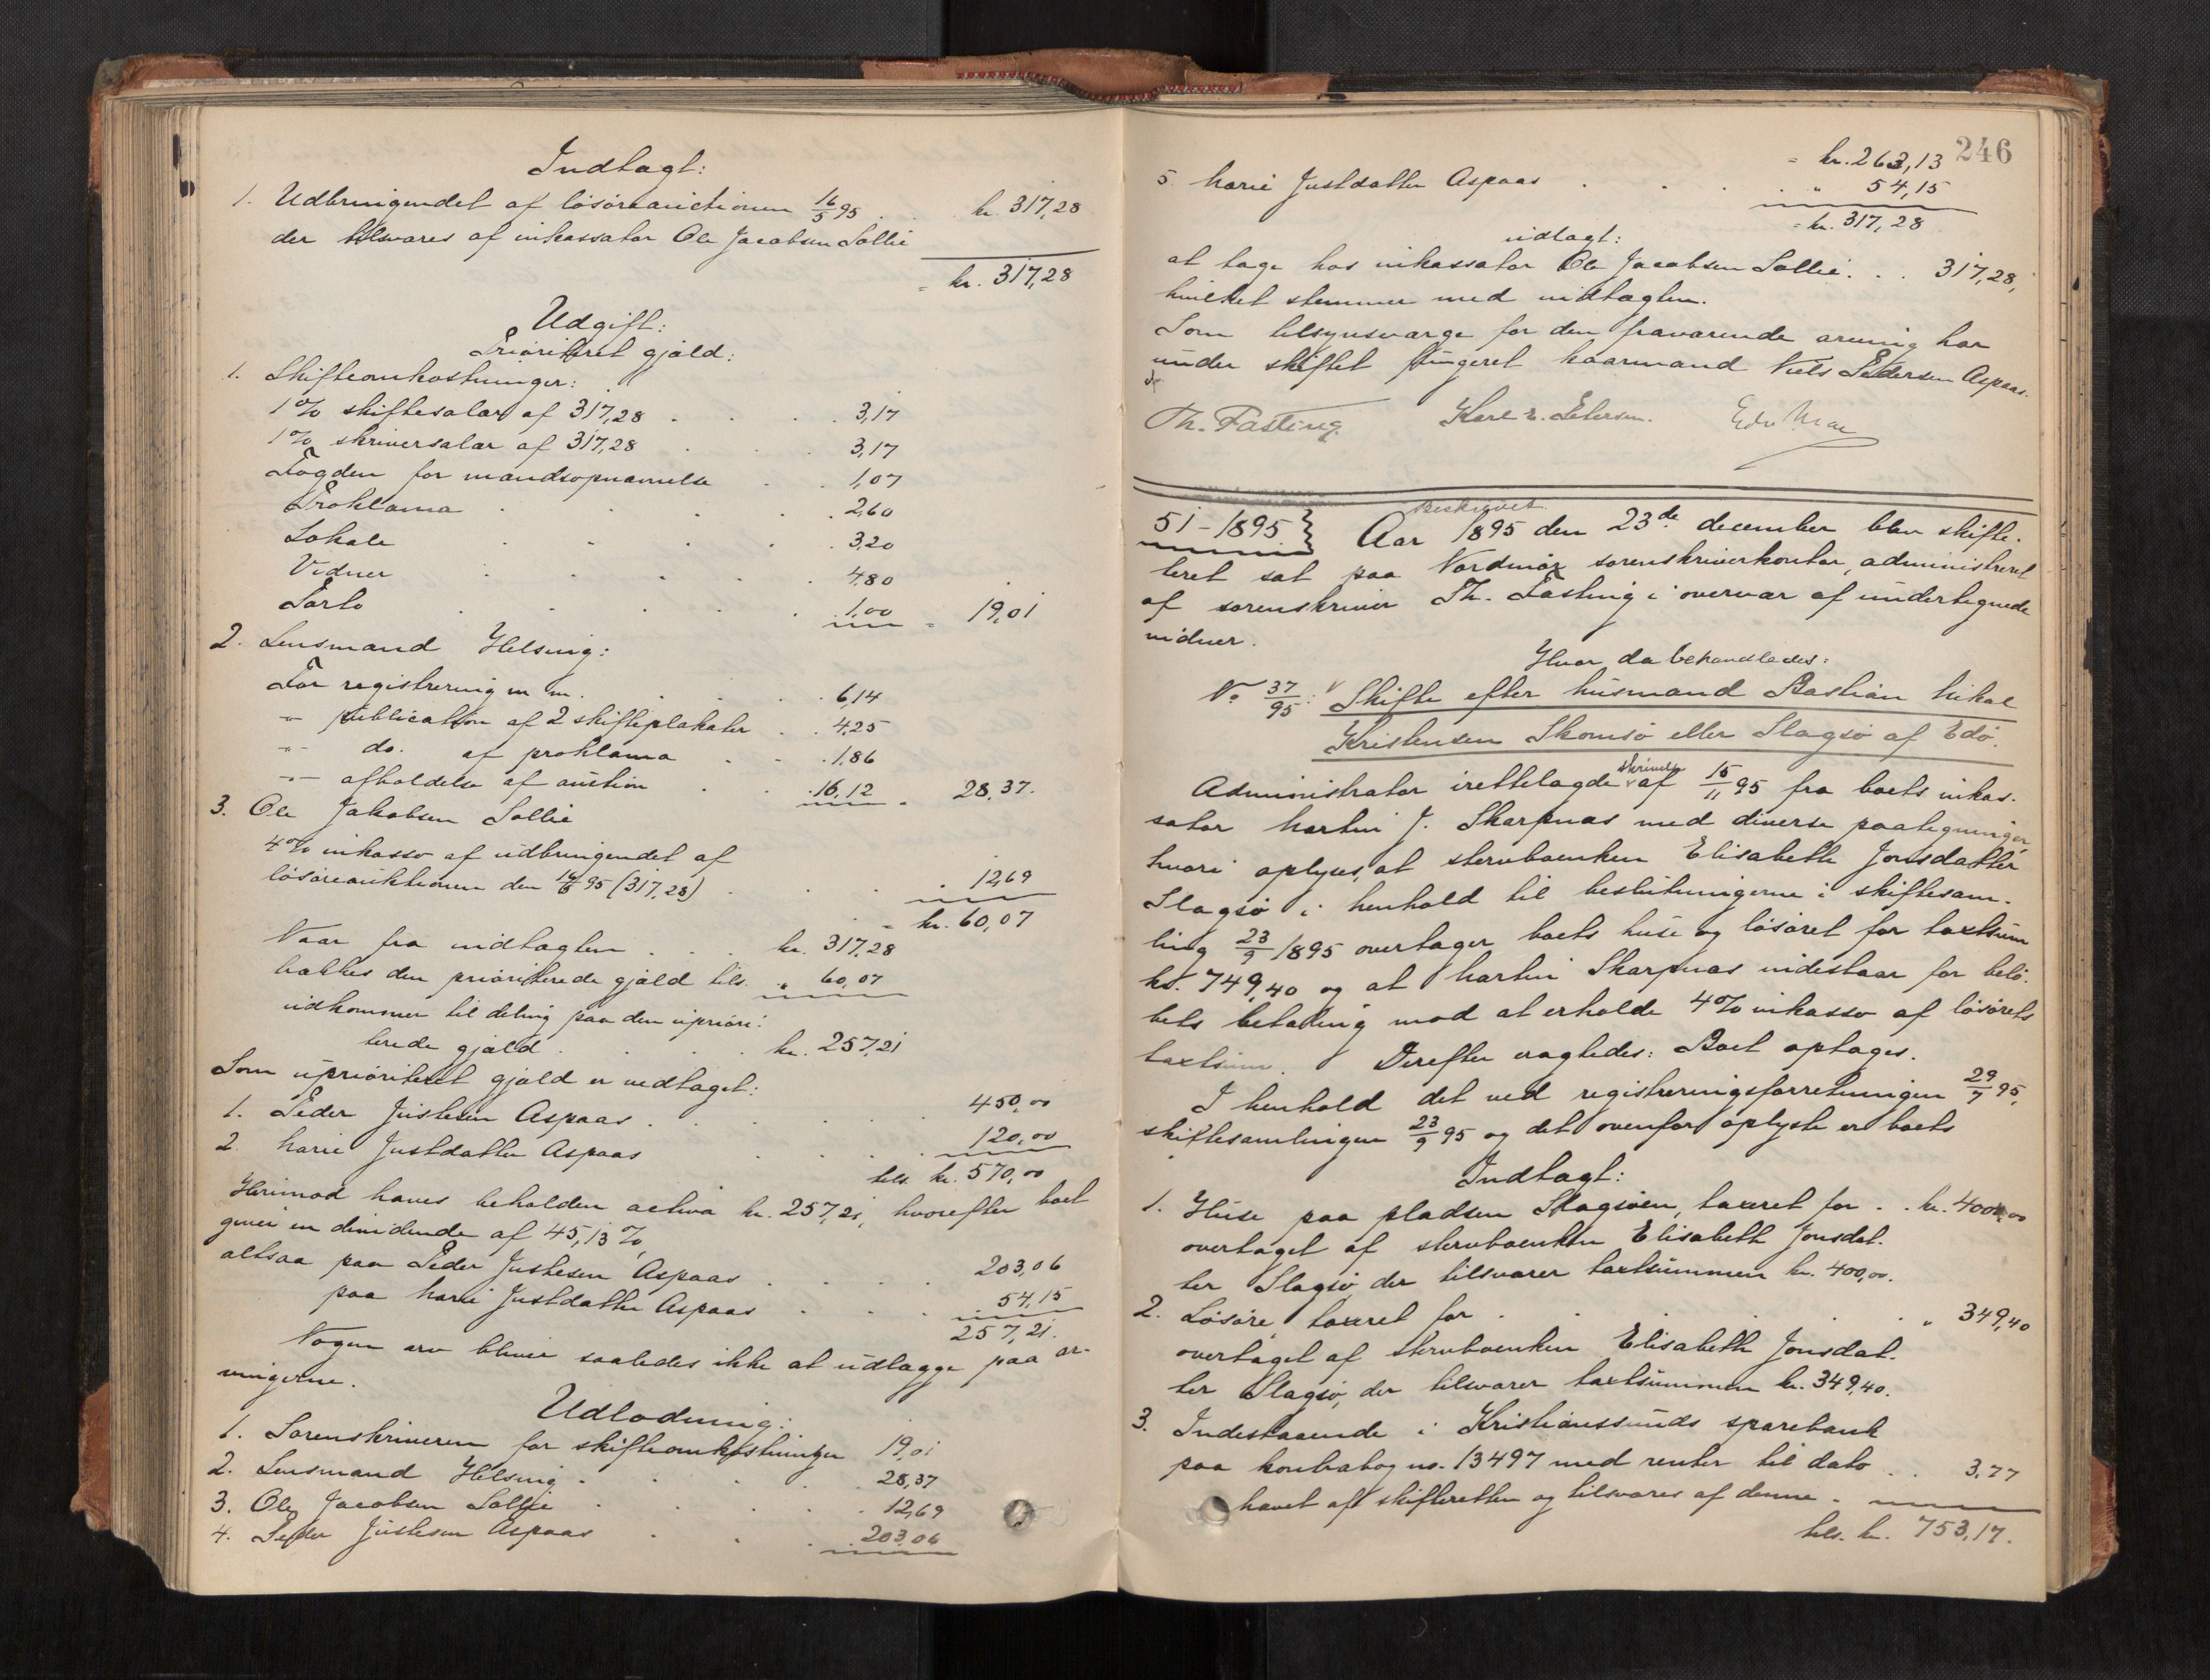 Indtægt:
1. Udbringendet af løsøreauctionen 16/5 95 . . kr. 317,28
der tilsvares af inkassator Ole Jacobsen Sollie
= kr. 317,28
Udgift:
Prioriteret gjæld:
1. Skifteomkostninger:
1% skiftesalær af 317,28 . . . 3,17
1% skriversalær af 317,28 . . . 3,17
Fogden for mandsopnævnelse . . 1,07
Proklama . . . . 2,60
Lokale . . . . 3,20
Vidner . . . . 4,80
Porto . . . . 1,00 = 19,01
2. Lensmand Helsing:
For registrering m m. . . . 6,14
-"- publication af 2 skifteplakater . . 4,25
-"- do. af proklama . . . 1,86
-"- afholdelse af auktion . . . 16,12 = 28,37.
3. Ole Jakobsen Sollie
4% inkasso af udbringendet af
løsøreauktionen den 16/5 95 (317,28) . . . . 12,69
= kr. 60,07
Naar fra indtægten . . . kr. 317,28
trækkes den prioriterede gjæld tils. " 60,07
udkommer til deling paa den upriori-
terede gjæld . . . . kr. 257,21
Som uprioriteret gjæld er vedtaget:
1. Peder Justesen Aspaas . . . . . 450,00
2. Marie Justdatter Aspaas . . . . 120,00
tils. kr. 570,00
Herimod haves beholden activa kr. 257,21, hvorefter boet
giver en dividende af 45,13 %,
altsaa paa Peder Justesen Aspaas . . . . 203,06
paa Marie Justdatter Aspaas . . . . 54,15
257,21.
Nogen arv bliver saaledes ikke at udlægge paa ar-
vingerne.
Udlodning:
1. Sorenskriveren for skifteomkostninger 19,01
2. Lensmand Helsing . . . . 28,37
3. Ole Jacobsen Sollie . . . . 12,69
4. Peder Justesen Aspaas . . . 203,06
246
= kr. 263,13
5. Marie Justdatter Aspaas . . . . " 54,15
= kr. 317,28
udlagt:
at tage hos inkassator Ole Jacobsen Sollie . . . 317,28,
hvilket stemmer med indtægten.
Som tilsynsværge for den fraværende arving har
under skiftet fungeret kaarmand Niels Pedersen Aspaas.
Th. Fasting. Karl E. Petersen. Edv Moe
Beskrevet
51-1895 } Aar 1895 den 23de december blev skifte-
teret sat paa Nordmør sorenskriverkontor, administreret
af sorenskriver Th. Fasting i overvær af undertegnede
vidner.
Hvor da behandledes:
No 37/95: Skifte efter husmand Bastian Mikal
Kristensen Skomsø eller Slagsø af Edø.
Administrator irettelagde skrivelse af 15/11 95 fra boets inkas-
sator Martin J. Skarpnæs med diverse paategninger
hvori oplyses, at stervboenken Elisabeth Jonsdatter
Slagsø i henhold til beslutningerne i skiftesam-
ling 23/9 1895 overtager boets huse og løsøret for taxtsum
kr. 749,40 og at Martin Skarpnæs indestaar for belø-
bets betaling mod at erholde 4% inkasso af løsørets
taxtsum. Derefter eragtedes: Boet optages.
I henhold det ved registreringsforretningen 29/7 95,
skiftesamlingen 23/9 95 og det ovenfor oplyste er boets
Indtægt:
1. Huse paa pladsen Slagsøen, taxeret for . . kr. 400,00
overtaget af stervboenken Elisabeth Jonsdat-
ter Slagsø, der tilsvarer taxtsummen kr. 400,00.
2. Løsøre, taxeret for . . . . . " 349,40
overtaget af stervboenken Elisabeth Jonsdat-
ter Slagsø, der tilsvarer taxtsummen kr. 349,40.
3. Indestaaende i Kristianssunds sparebank
paa kontrabog no. 13497 med renter til dato . . 3,77
hævet af skifteretten og tilsvares af denne .
tils. kr. 753,17.